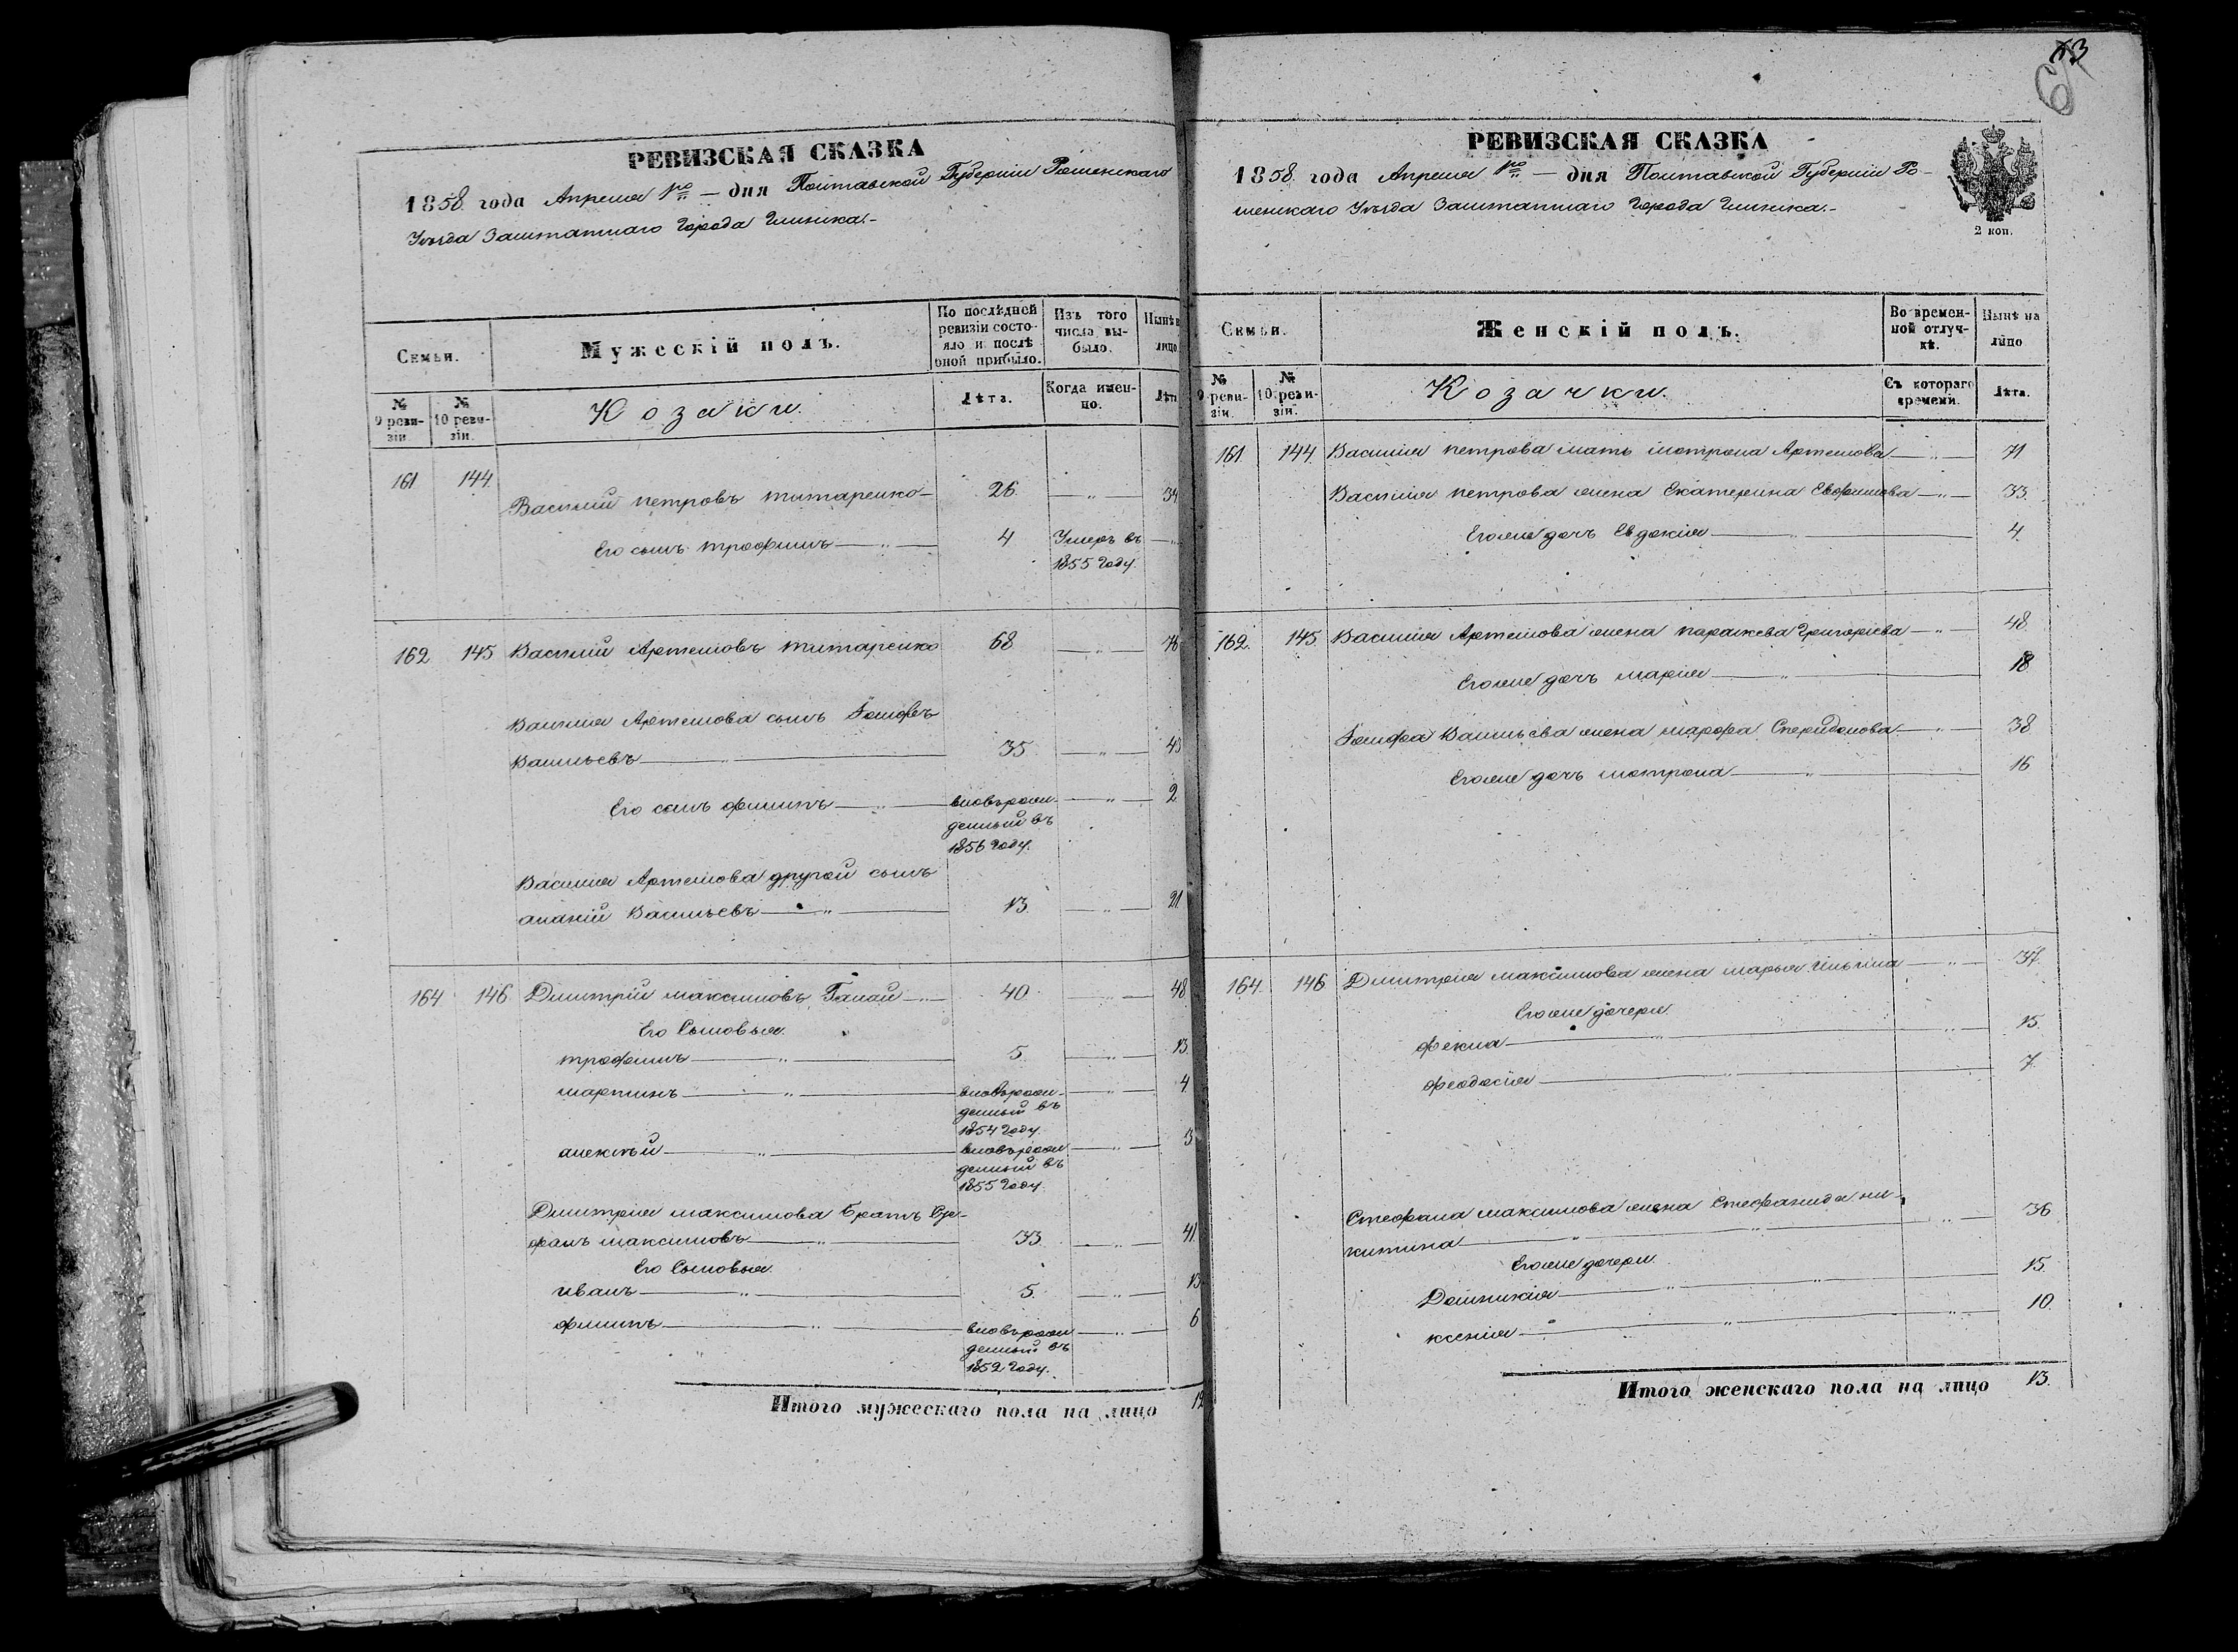 РЕВИЗСКАЯ СКАЗКА
1858 года Апреля 1го — дня Полтавской Губернiи Роменскаго
Уѣзда Заштатнаго Города Глинска.-
Семьи.
Мужескiй полъ.
По послѣдней ревизiи состояло и послѣ оной прибыло.
Изъ того числа выбыло.
Нынѣ лицо
№ 9 ревизiи
№ 10 ревизiи.
Козаки.
Лѣта.
Когда именно.
Лѣта
161 144
Василий петровъ титаренко 26. — „ — 34
Его сынъ трофимъ — „ — 4 Умеръ въ — „
1855 году.
162 145 Василий Артемовъ титаренко 68 — „ — 76
Василия Артемова сынъ Iосифъ
Васильевъ — „ — 35 — „ — 43
Его сынъ филипъ — „ — вновьрож- — „ — 2
денный въ
1856 году.
Василия Артемова другой сынъ
ананiй Васильевъ — „ — 13. — „ — 21
164 146 Дмитрiй максимовъ Галай — „ — 40 — „ — 48
Его Сыновья.
трофимъ — „ — 5. — „ — 13.
мартинъ — „ — вновьрож- — „ — 4
денный въ
1854 году.
алексѣй — „ — вновьрож — „ — 3
денный въ
1855 году.
Дмитрия максимова братъ Сте-
фанъ максимовъ — „ — 33. — „ — 41.
Его Сыновья.
иванъ — „ — 5. — „ — 13
филипъ — „ — вновьрож — „ — 6
денный въ
1852 году.
Итого мужескаго пола на лицо 12
63
РЕВИЗСКАЯ СКАЗКА
1858 года Апреля 1го — дня Полтавской Губернiи Ро-
менскаго Уѣзда Заштатнаго Города Глинска.-
2 коп.
Семьи.
Женскiй полъ.
Во временной отлучкѣ.
Нынѣ на лицо
№ 9 ревизiи.
№ 10 ревизiи.
Козачки.
Съ котораго времени.
Лѣта.
161. 144. Василия петрова мать мотрона Артемова — „ — 71
Василия петрова жена Екатерина Евфимова — „ — 33.
Егоже дочь Евдокiя — „ — 4.
162. 145. Василия Артемова жена параскева Григорiева — „ — 48.
Егоже дочь марiя — „ — 18
Iосифа Васильева жена марфа Спиридонова — „ — 38
Егоже дочь мотрона — „ — 16
164. 146. Дмитрия максимова жена марья ильина — „ — 37.
Егоже дочери
фекла — „ — 15.
феодосiя — „ — 7.
Стефана максимова жена Стефанида ни-
китина — „ — 36
Егоже дочери.
Домникiя — „ — 15.
ксенiя — „ — 10.
Итого женскаго пола на лицо 13.